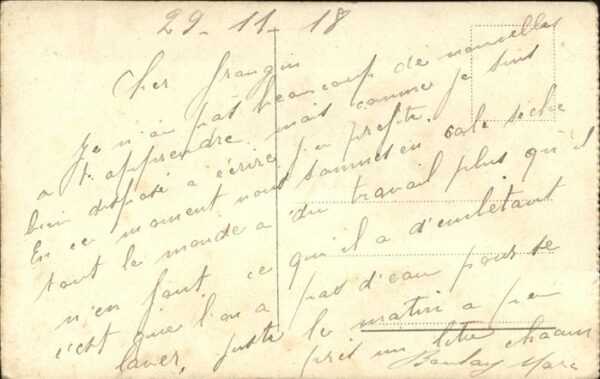 29 - 11 - 18
Cher frangin
Je n'ai pas beaucoup de nouvelles
a t apprendre mais comme je suis
bien disposé a écrire j'en profite.
En ce moment nous sommes en cale sèche
tout le monde a du travail plus qu'il
n'en faut ce qu'il a d'embêtant
c'est que l'on a pas d'eau pour se
laver, juste le matin a peu
près un litre chacun
Marc